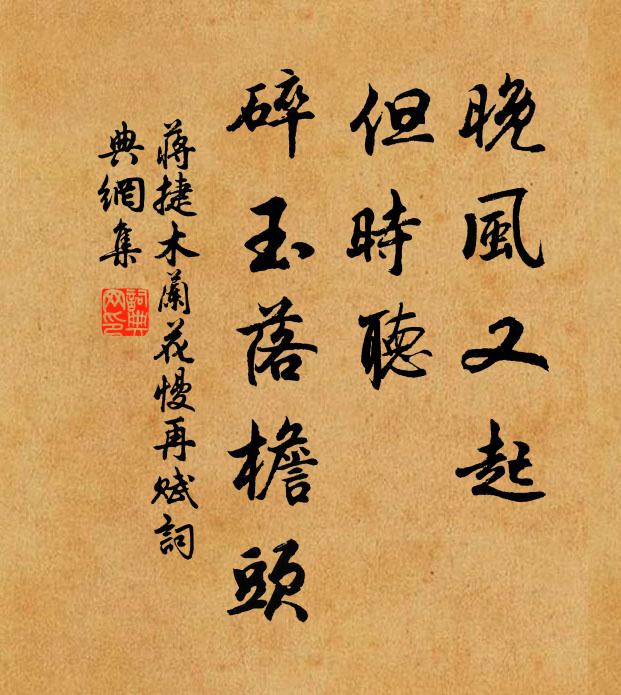 晚風又起
但時聽
碎玉落檐頭
蔣捷木蘭花慢再賦詞
典網集
詞典網印